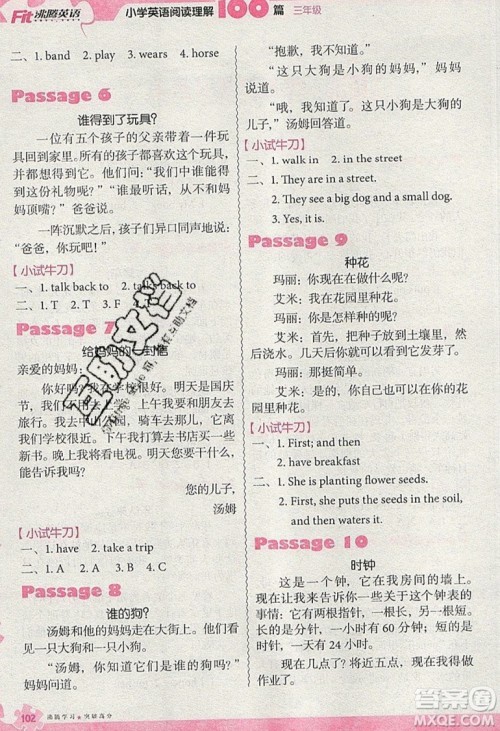 Fit 沸腾英语
小学英语阅读理解100篇 三年级
二、1. band 2. play 3. wears 4. horse
Passage 6
谁得到了玩具?
一位有五个孩子的父亲带着一件玩
具回到家里。所有的孩子都想要它。父亲
喊孩子们过来并问道:“我们中谁能得到
这份礼物呢?”“谁最听话,谁从不和妈
妈顶嘴?”爸爸说。
一阵沉默之后,孩子们异口同声地说:
“爸爸,你玩玩具吧。”
【小试牛刀】
一、1. talk back to 2. talks back to
二、1. T 2. T 3. F 4. F
Passage 7
给妈妈的一封信
亲爱的妈妈:
你好吗?我在学校很好。明天是国
庆节,我将去公园,骑车和朋友出去
旅行。午饭后,我将去商店,商店离我
们学校很近。下午我打算去商店买一些
新书。晚上我将看电视。明天您要做什么
呢?能告诉我吗?
您的儿子,
汤姆
【小试牛刀】
一、1. have 2. take a trip
二、1. A 2. A 3. B 4. C
Passage 8
谁的狗?
汤姆和他的妈妈走在大街上。他们
看到一只大狗和一只小狗。
“汤姆,你知道它们是什么狗吗?”
妈妈问道。
“抱歉,我不知道。”
“这只大狗是小狗的妈妈,”妈妈
说道。
“哦,我知道了。这只小狗是大狗的
儿子,”汤姆回答道。
【小试牛刀】
一、1. walk in 2. in the street
二、1. They are in the street.
2. They see a big dog and a small dog.
3. Yes, it is.
Passage 9
种花
玛丽:你现在在做什么呢?
艾米:我在花园里种花。
玛丽:你怎样种它们呢?
艾米:首先,把种子放到土壤里,然
后浇水。几天后你会看到它们发芽了。
玛丽:那挺简单。
艾米:是的,你也可以在自己的花
园里种花。
【小试牛刀】
一、1. First; and then
2. have breakfast
二、1. She is planting flower seeds.
2. First, she puts the seeds in the soil,
and then waters them.
Passage 10
时钟
这是一个钟,它在我房间的墙上。
我来告诉你一些关于这个钟在钟表里的
事情:它有两个指针,一根长,一根短。
一小时有60分钟,一分钟有60秒。
现在几点了?将近五点,我得走了。
明天见。
102 沸腾学习 突破高分
答案圈
MXQE.COM